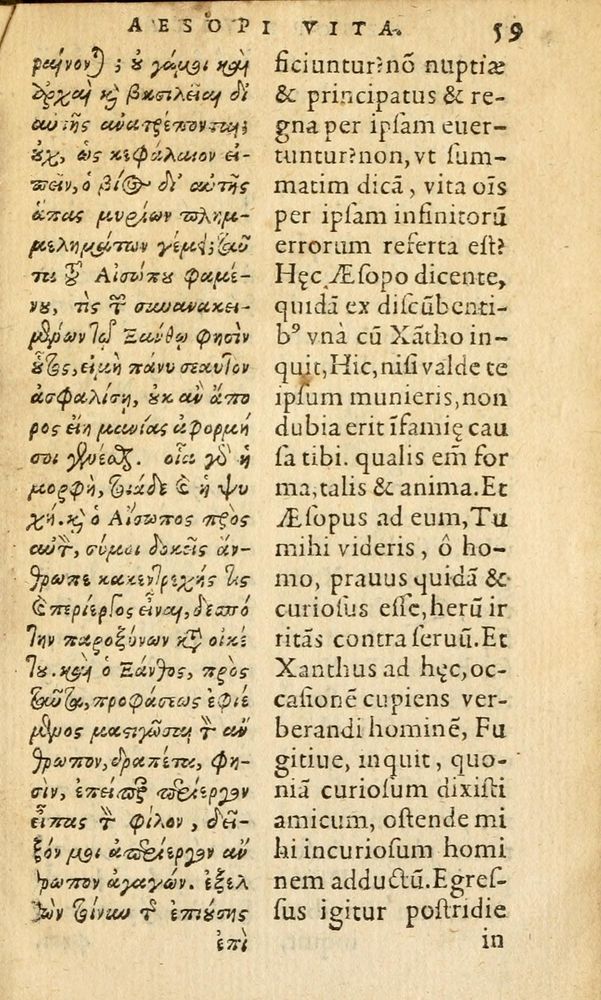 AESOPI VITA. 59
ραίνονται; οὐ γάμοι καὶ
ἀρχαὶ καὶ βασιλεῖαι δι'
αὐτῆς ἀνατρέπονται;
οὐχ, ὡς κεφάλαιον εἰ-
πεῖν, ὁ βίος δι' αὐτῆς
ἅπας μυρίων πλημ-
μελημάτων γέμει; ταῦ
τα τοῦ Αἰσώπου φαμέ-
νου, τὶς τῶν συνανακει-
μένων τῷ Ξάνθῳ φησὶν
οὗτος, εἰ μὴ πάνυ σεαυτὸν
ἀσφαλίσῃ, οὐκ ἂν ἄπο
ρος εἴη μανίας ἀφορμή
σοι γενέσθαι. οἵα γὸ ἡ
μορφὴ, τοιάδε καὶ ἡ ψυ
χή. καὶ ὁ Αἴσωπος πρὸς
αὐτὸν, σύ μοι δοκεῖς ἄν-
θρωπε κακεντρεχής τις
καὶ περίεργος εἶναι, δεσπό
την παροξύνων κατὰ οἰκέ
του. καὶ ὁ Ξάνθος, πρὸς
ταῦτα, προφάσεως ἐφιέ
μενος μαστιγῶσαι τὸν ἄν
θρωπον, δραπέτα, φη-
σὶν, ἐπειδὴ περίεργον
εἶπας τὸν φίλον, δεῖ-
ξόν μοι ἀπερίεργον ἄν
θρωπον ἀγαγών. ἐξελ
θὼν τοίνυν τῆς ἐπιούσης
ἐπὶ
ficiuntur?nō nuptiæ
& principatus & re-
gna per ipsam euer-
tuntur?non,vt sum-
matim dicā, vita oīs
per ipsam infinitorū
errorum referta est?
Hęc Æsopo dicente,
quidā ex discūbenti-
bꝰ vnà cū Xātho in-
quit,Hic,nisi valde te
ipsum munieris,non
dubia erit īfamię cau
sa tibi. qualis em̄ for
ma,talis & anima.Et
Æsopus ad eum,Tu
mihi videris, ô ho-
mo, prauus quidā &
curiosus esse,herū ir
ritās contra seruū.Et
Xanthus ad hęc,oc-
casionē cupiens ver-
berandi hominē, Fu
gitiue, inquit, quo-
niā curiosum dixisti
amicum, ostende mi
hi incuriosum homi
nem adductū.Egres-
sus igitur postridie
in